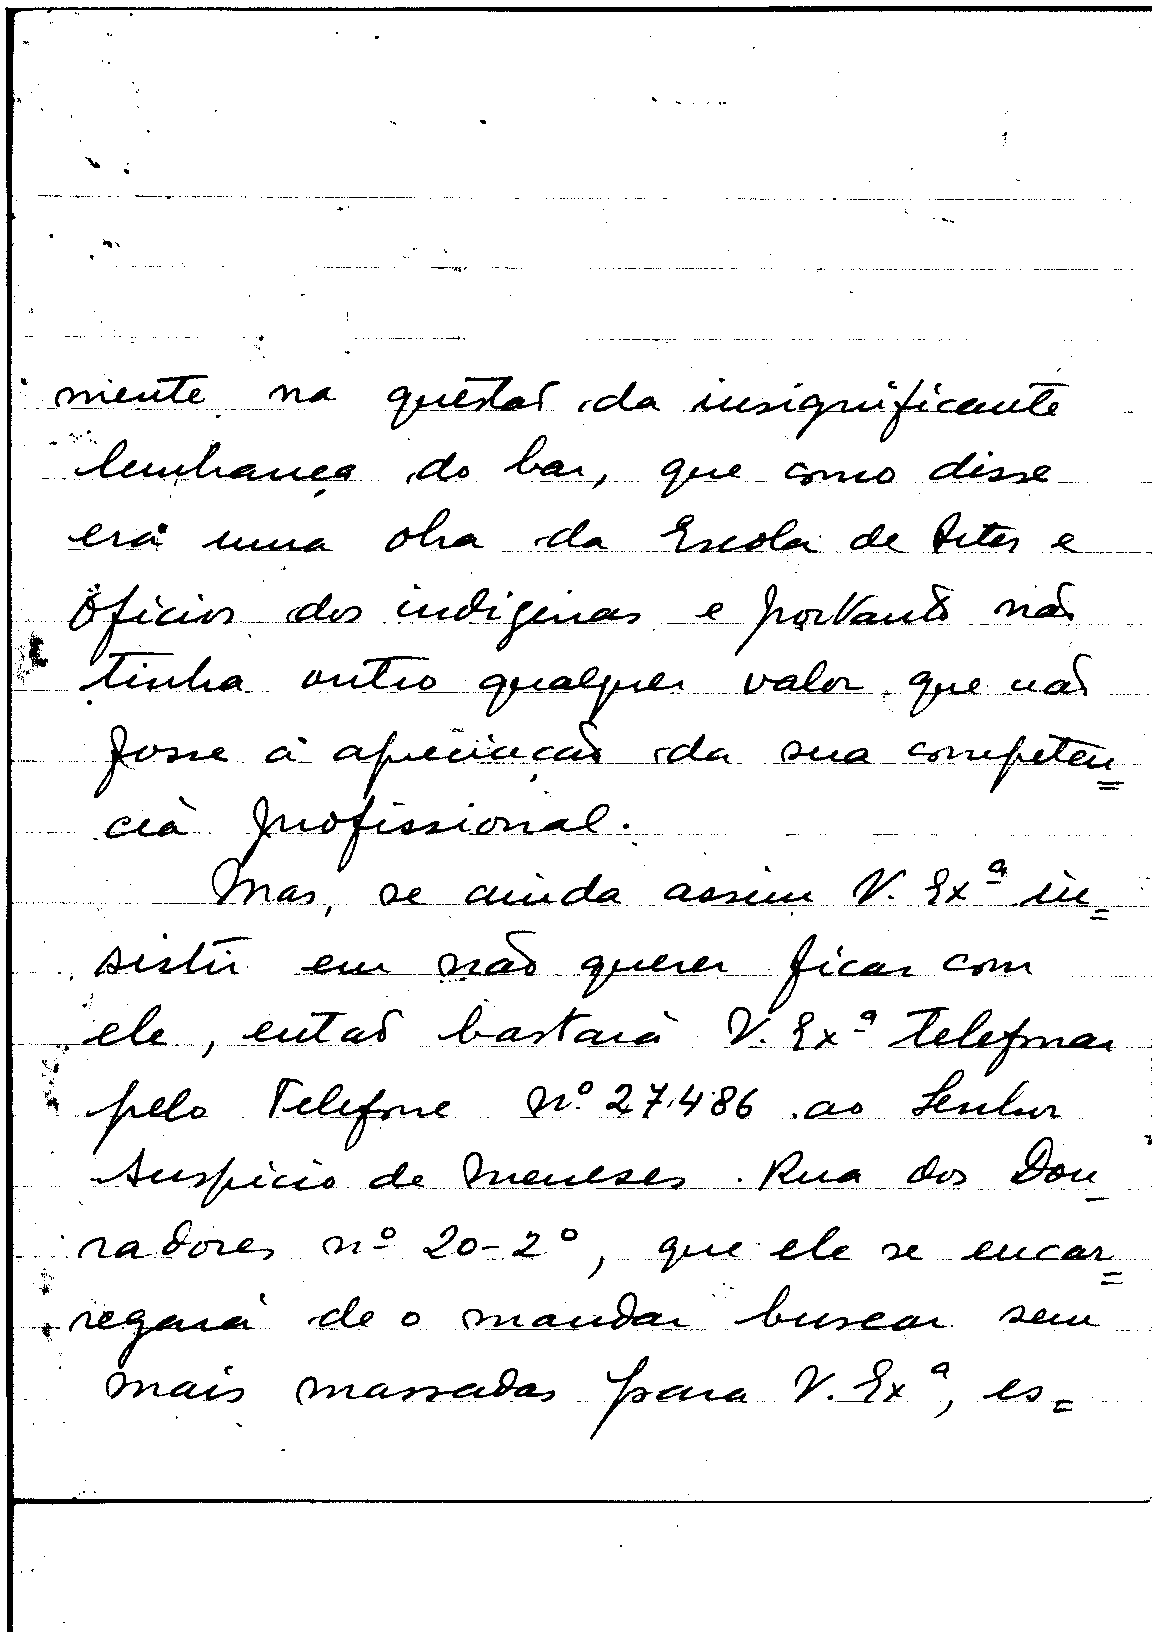 mente na questão da insignificante
lembrança do bar, que como disse
era uma obra da Escola de Artes e
Ofícios dos indígenas e portanto não
tinha outro qualquer valor que não
fosse a apreciação da sua competên=
cia profissional.
Mas, se ainda assim V. Exª in=
sistir em não querer ficar com
ele, então bastará V. Exª telefonar
pelo Telefone nº 27.486 ao Senhor
Auspício de Meneses. Rua dos Dou_
radores nº 20-2º, que ele se encar=
regará de o mandar buscar sem
mais massadas para V. Exª, es=